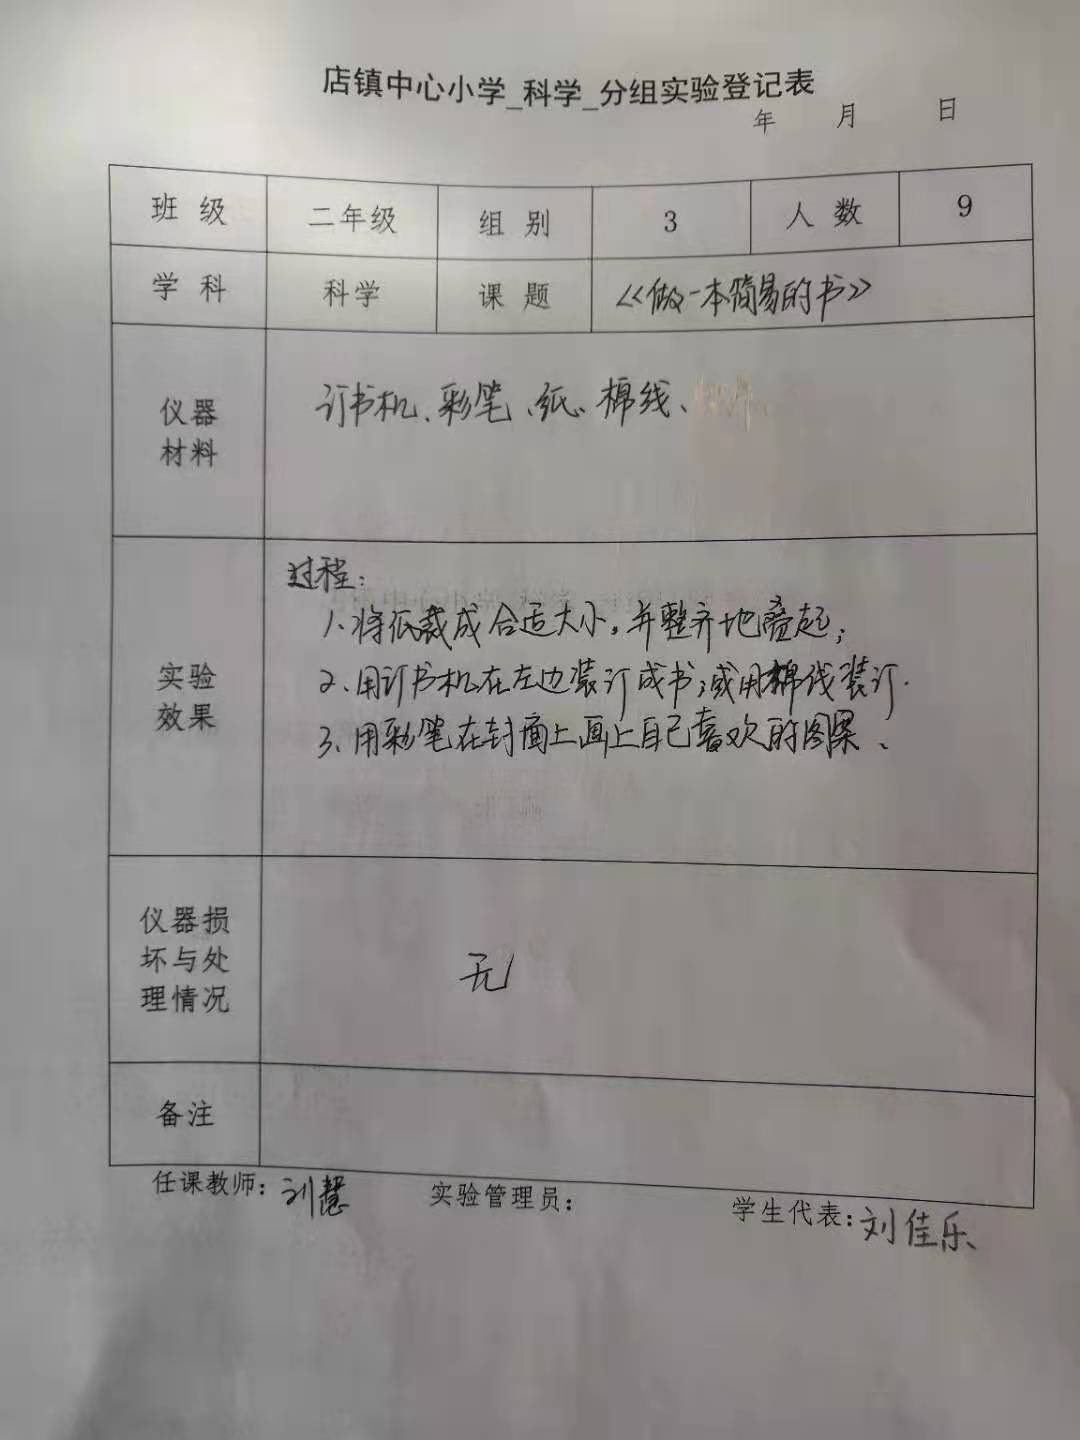 店镇中心小学_科学_分组实验登记表
年 月 日
班 级 二年级 组 别 3 人 数 9
学 科 科学 课 题 《做一本简易的书》
仪器
材料
订书机、彩笔、纸、棉线、
实验
效果
过程：
1、将纸裁成合适大小，并整齐地叠起；
2、用订书机在左边装订成书；或用棉线装订.
3、用彩笔在封面上画上自己喜欢的图案、
仪器损
坏与处
理情况
无
备注
任课教师：刘慧 实验管理员： 学生代表：刘佳乐